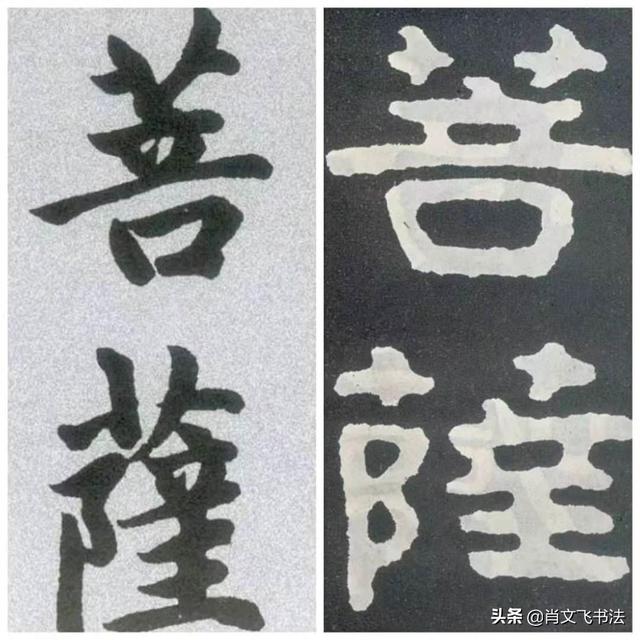 菩
薩
菩
薩
头条 @肖文飞书法